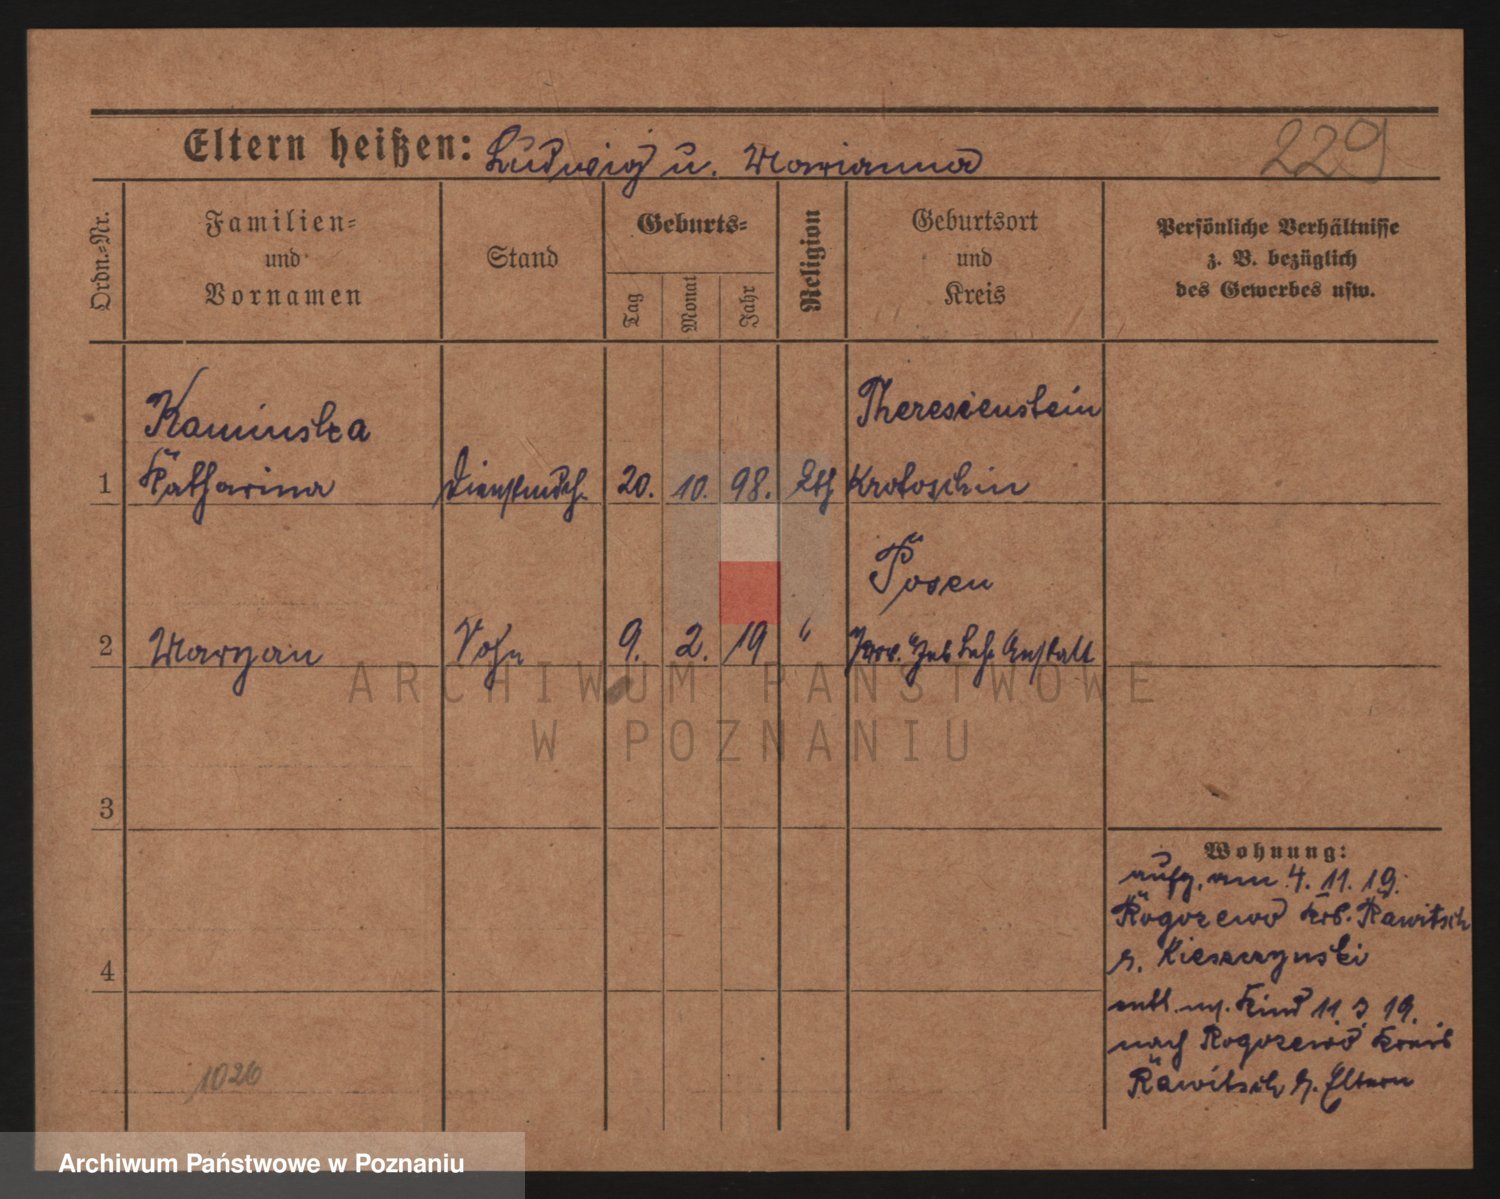 Eltern heißen: Ludwig u. Marianna
229
Ordn.-Nr.
Familien-
und
Vornamen
Stand
Geburts-
Tag
Monat
Jahr
Religion
Geburtsort
und
Kreis
Persönliche Verhältnisse
z. B. bezüglich
des Gewerbes usw.
Kaminska
Theresienstein
1 Katharina Dienstmdch. 20. 10. 98. kth Krotoschin
Posen
2 Maryan Sohn 9. 2. 19 " Prov. Heb. Leh. Anstalt
3
4
Wohnung:
aufg. am 4. 11. 19.
Rogozewo Krs. Rawitsch
b.
entl. m. Kind 11. 19.
nach Rogozewo Kreis
Rawitsch b. Eltern
1026
ARCHIWUM PAŃSTWOWE
W POZNANIU
Archiwum Państwowe w Poznaniu